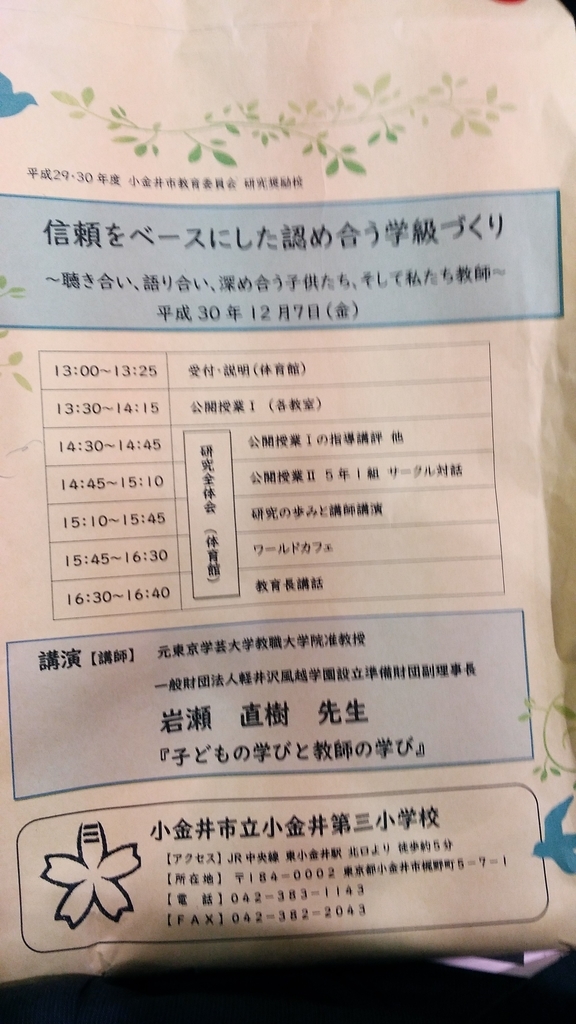 平成29・30年度 小金井市教育委員会 研究奨励校
信頼をベースにした認め合う学級づくり
～聴き合い、語り合い、深め合う子供たち、そして私たち教師～
平成30年12月7日(金)
13:00～13:25 受付・説明(体育館)
13:30～14:15 公開授業Ⅰ (各教室)
研究全体会 (体育館)
14:30～14:45 公開授業Ⅰの指導講評 他
14:45～15:10 公開授業Ⅱ 5年1組 サークル対話
15:10～15:45 研究の歩みと講師講演
15:45～16:30 ワールドカフェ
16:30～16:40 教育長講話
講演【講師】 元東京学芸大学教職大学院准教授
一般財団法人軽井沢風越学園設立準備財団副理事長
岩瀬 直樹 先生
『子どもの学びと教師の学び』
小金井市立小金井第三小学校
【アクセス】JR中央線 東小金井駅 北口より 徒歩約5分
【所在地】 〒184-0002 東京都小金井市梶野町5-7-1
【電 話】042-383-1143
【FAX】042-382-2043